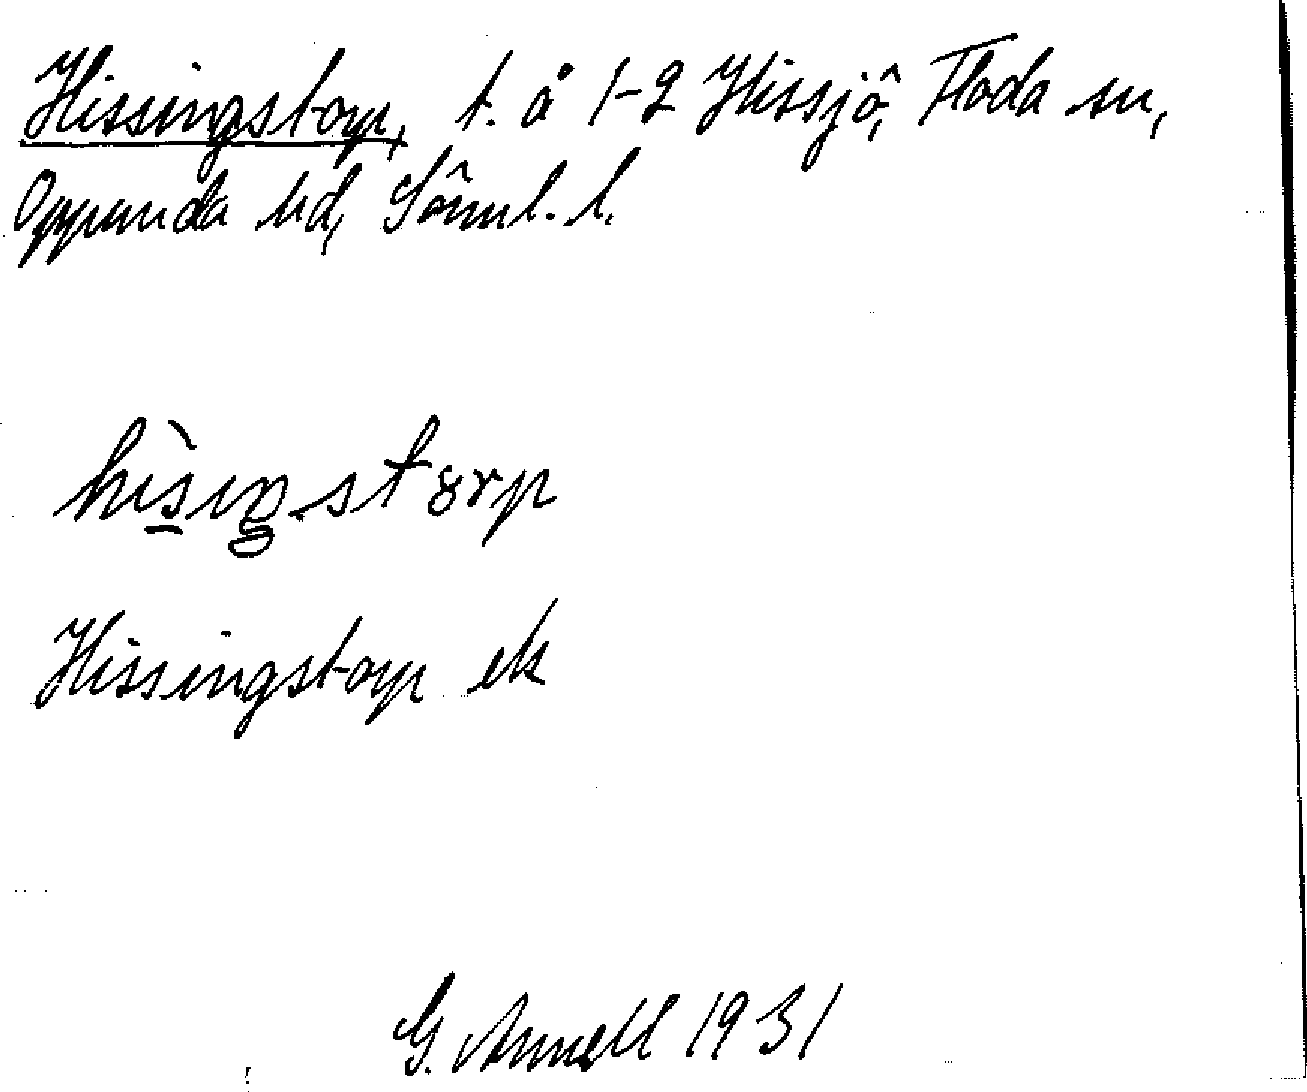 Hissingstorp, t. å 1-2 Hissjö, Floda sn,
Oppunda hd, Sörml. l.
hìs̠iŋstɔrp
Hissingstorp ek
G. Annell 1931